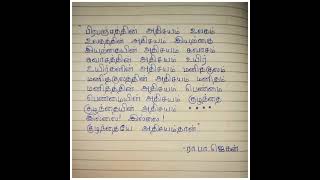 "பிரபஞ்சத்தின் அதிசயம் உலகம்
உலகத்தின் அதிசயம் இயற்கை
இயற்கையின் அதிசயம் சுவாசம்
சுவாசத்தின் அதிசயம் உயிர்
உயிர்களின் அதிசயம் மனிதகுலம்
மனிதகுலத்தின் அதிசயம் மனிதம்
மனிதத்தின் அதிசயம் பெண்ணம்
பெண்மையின் அதிசயம் குழந்தை
குழந்தையின் அதிசயம் ****
இல்லை! இல்லை!
குழந்தையே அதிசயம்தான்"
-ரா.பா.ஜெகன்